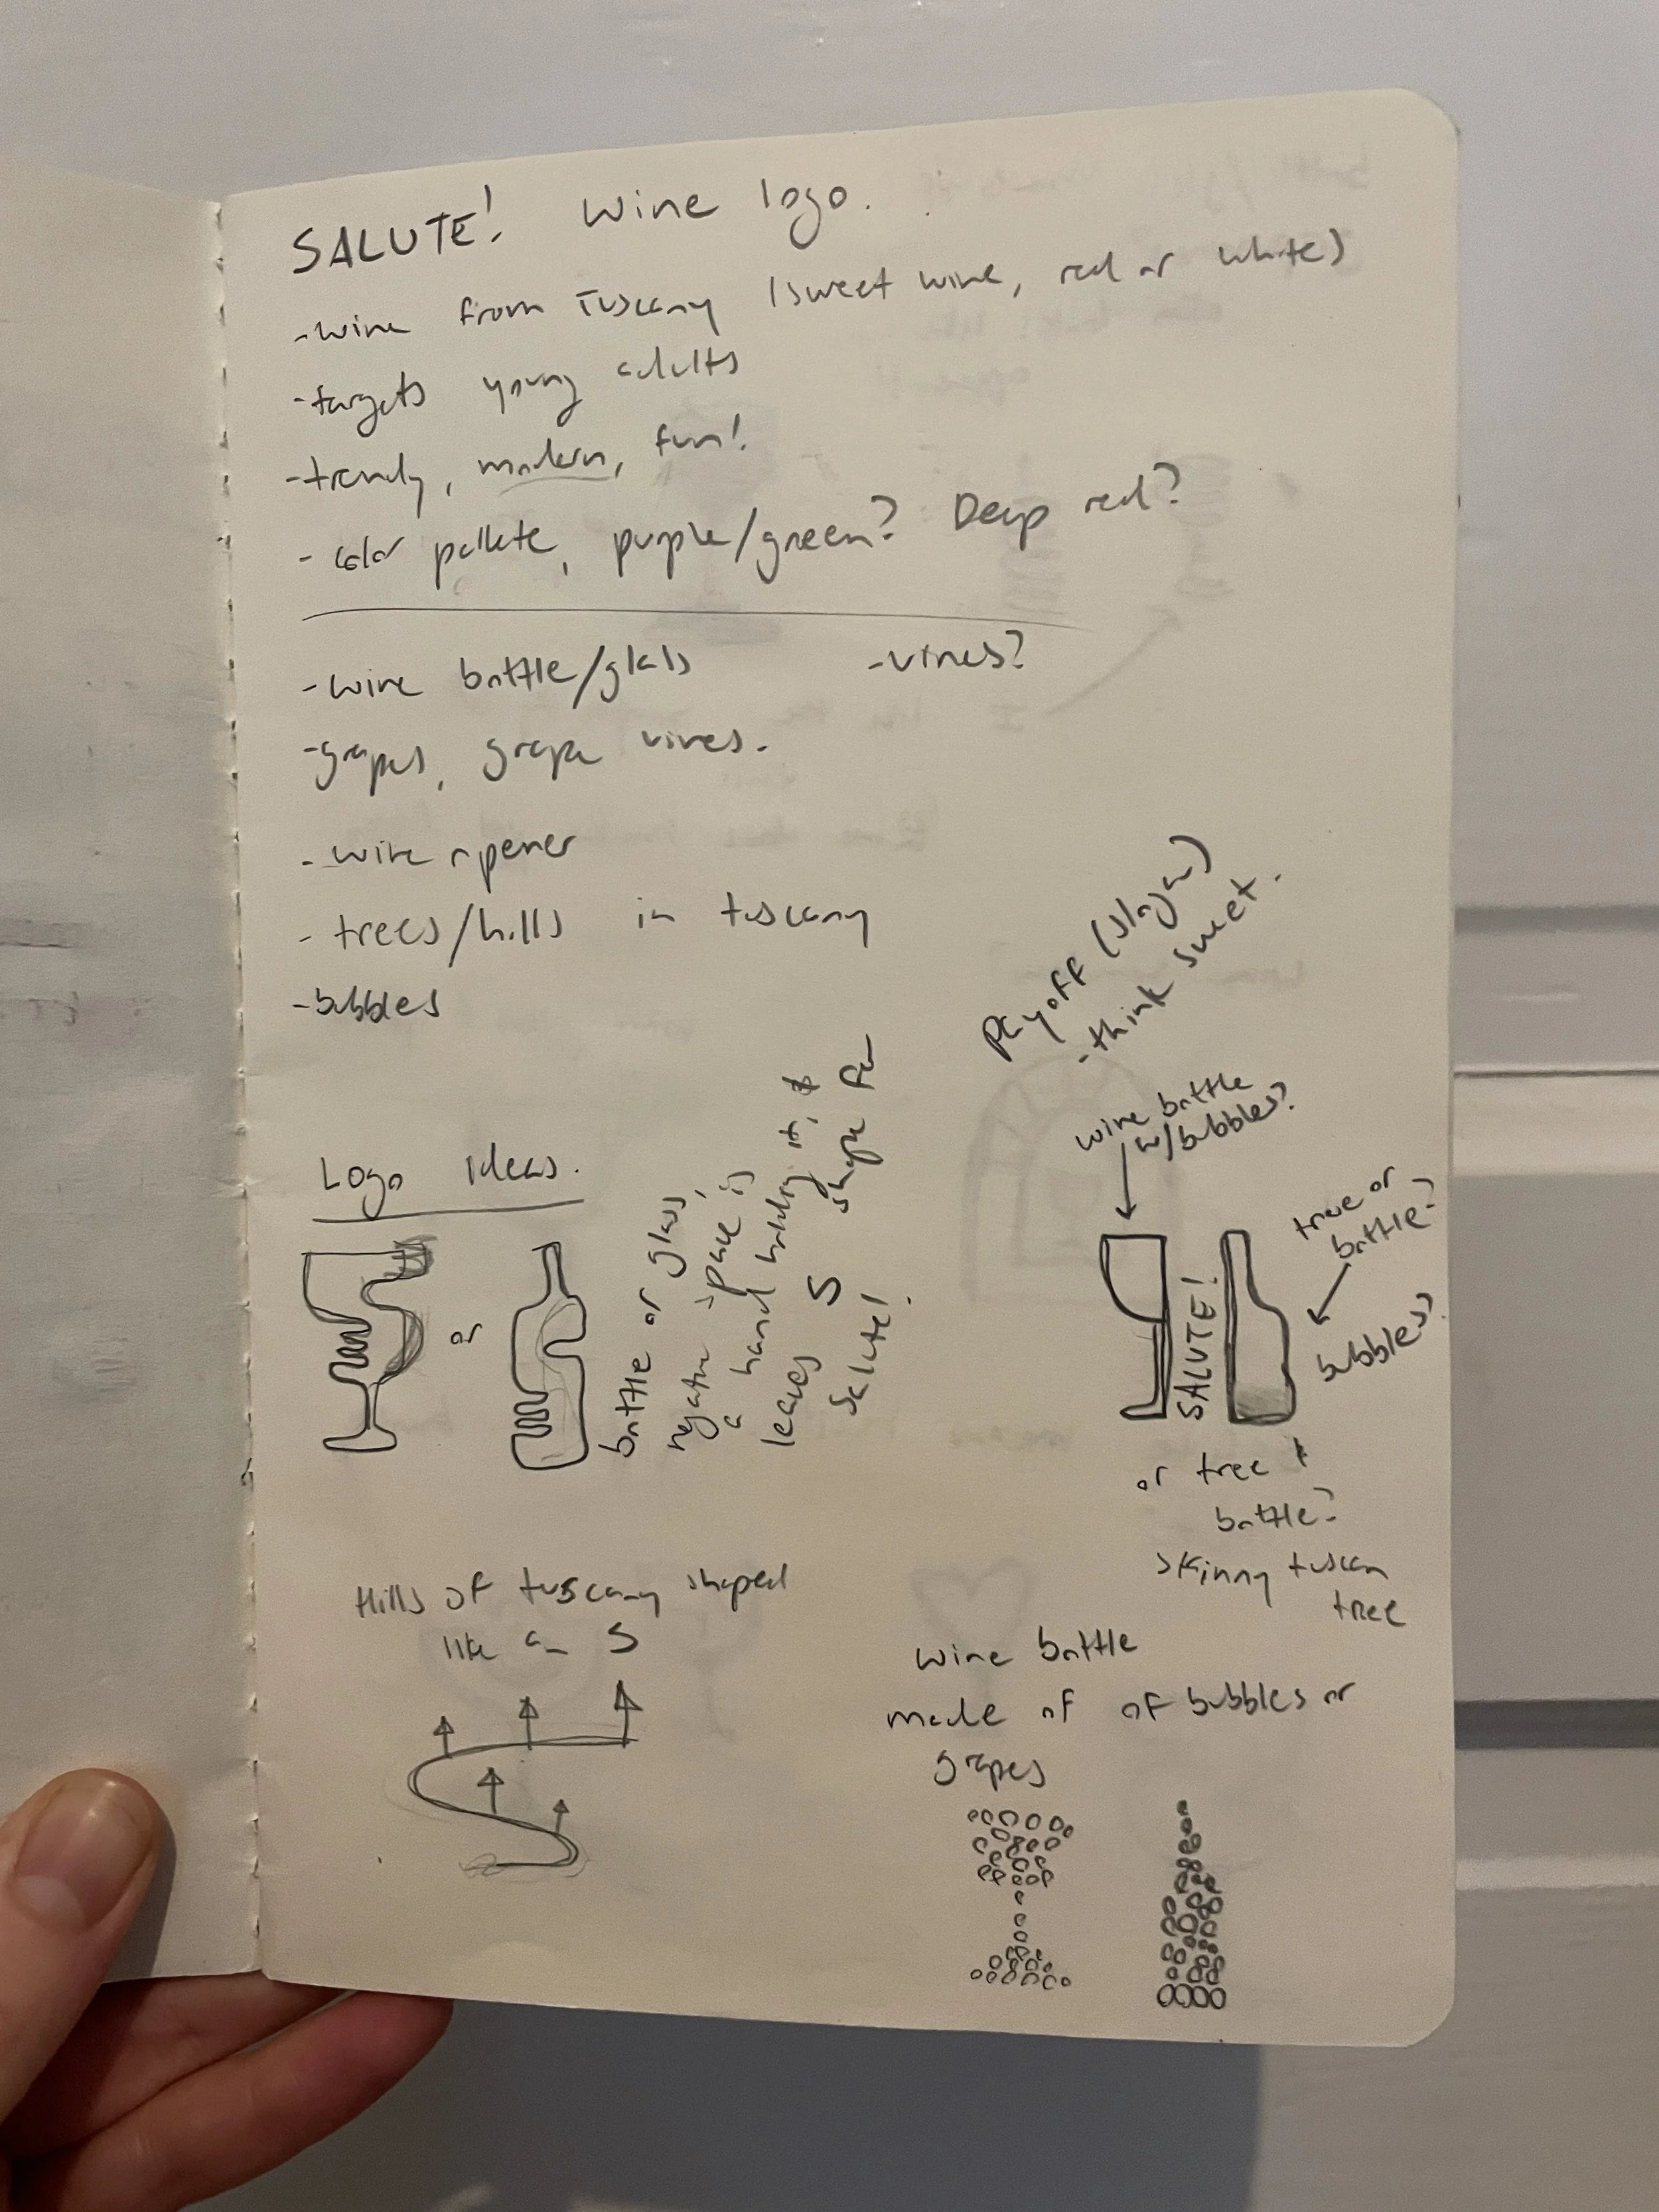 SALUTE! Wine logo.
-wine from Tuscany (sweet wine, red or white)
-targets young adults
-trendy, modern, fun!
- color pallete, purple/green? Deep red?
-wine bottle/glass
-vines?
-grapes, grape vines.
-wine opener
- trees/hills in tuscany
-bubbles
Payoff (slogan)
-think sweet.
Logo Ideas.
or
bottle or glass,
negative space is
a hand holding it, &
leaves S shape for
Salute!
wine bottle
w/bubbles?
SALUTE!
tree or
bottle?
bubbles?
or tree +
bottle?
skinny tuscan
tree
Hills of tuscany shaped
like an S
wine bottle
made of of bubbles or
grapes